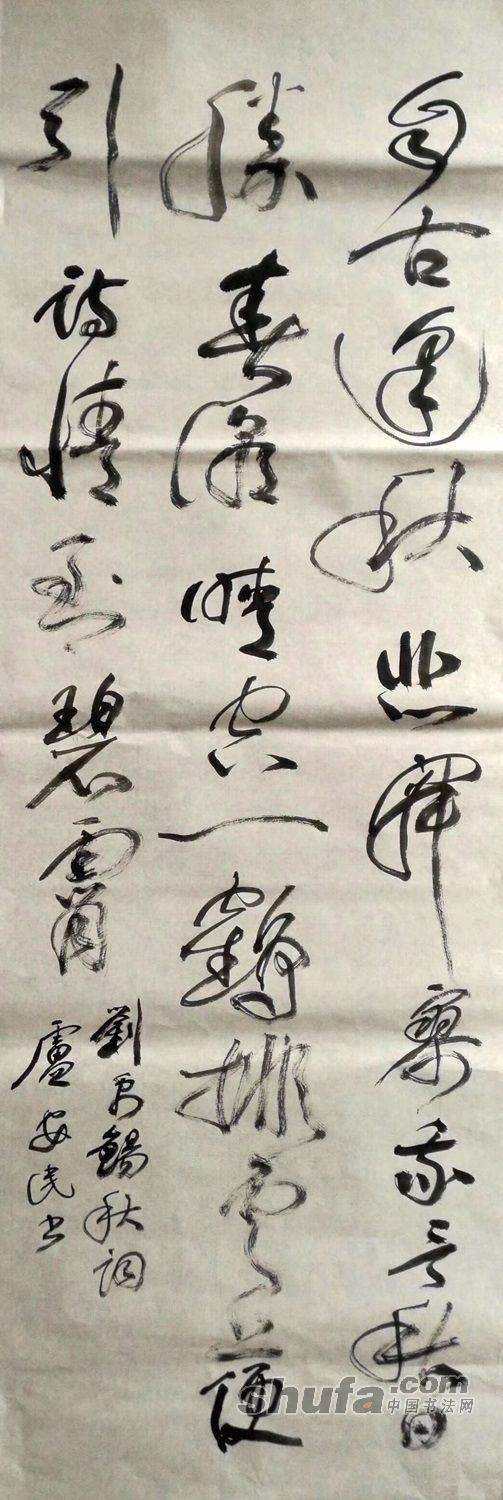 自古逢秋悲寂寥我言秋日
勝春潮晴空一鶴排雲上便
引詩情到碧霄
劉禹錫秋詞
盧安民书
shufa.com
中国书法网